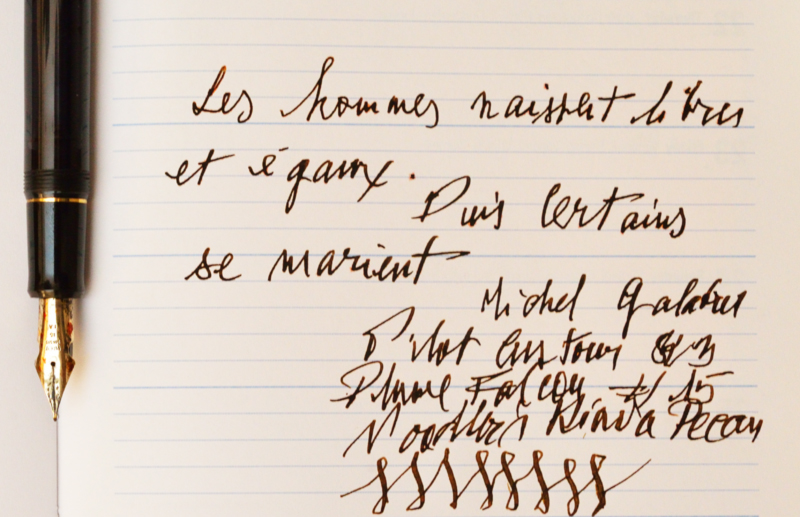 Les hommes naissent libres
et égaux.
Puis certains
se marient
Michel Galabru
Pilot Custom 823
Plume Falcon # 15
Noodler's Kiowa Pecan